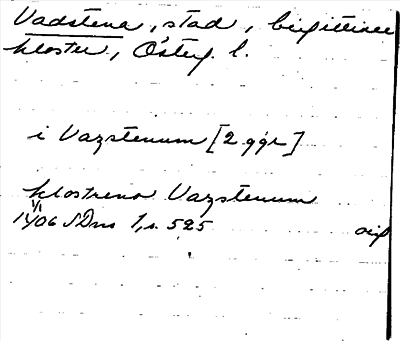 Vadstena, stad, birgittiner
kloster, Österg. l.
i Vazstenum [2 ggr]
klostreno Vazstenum
1406 SDns 1, s. 525 orig